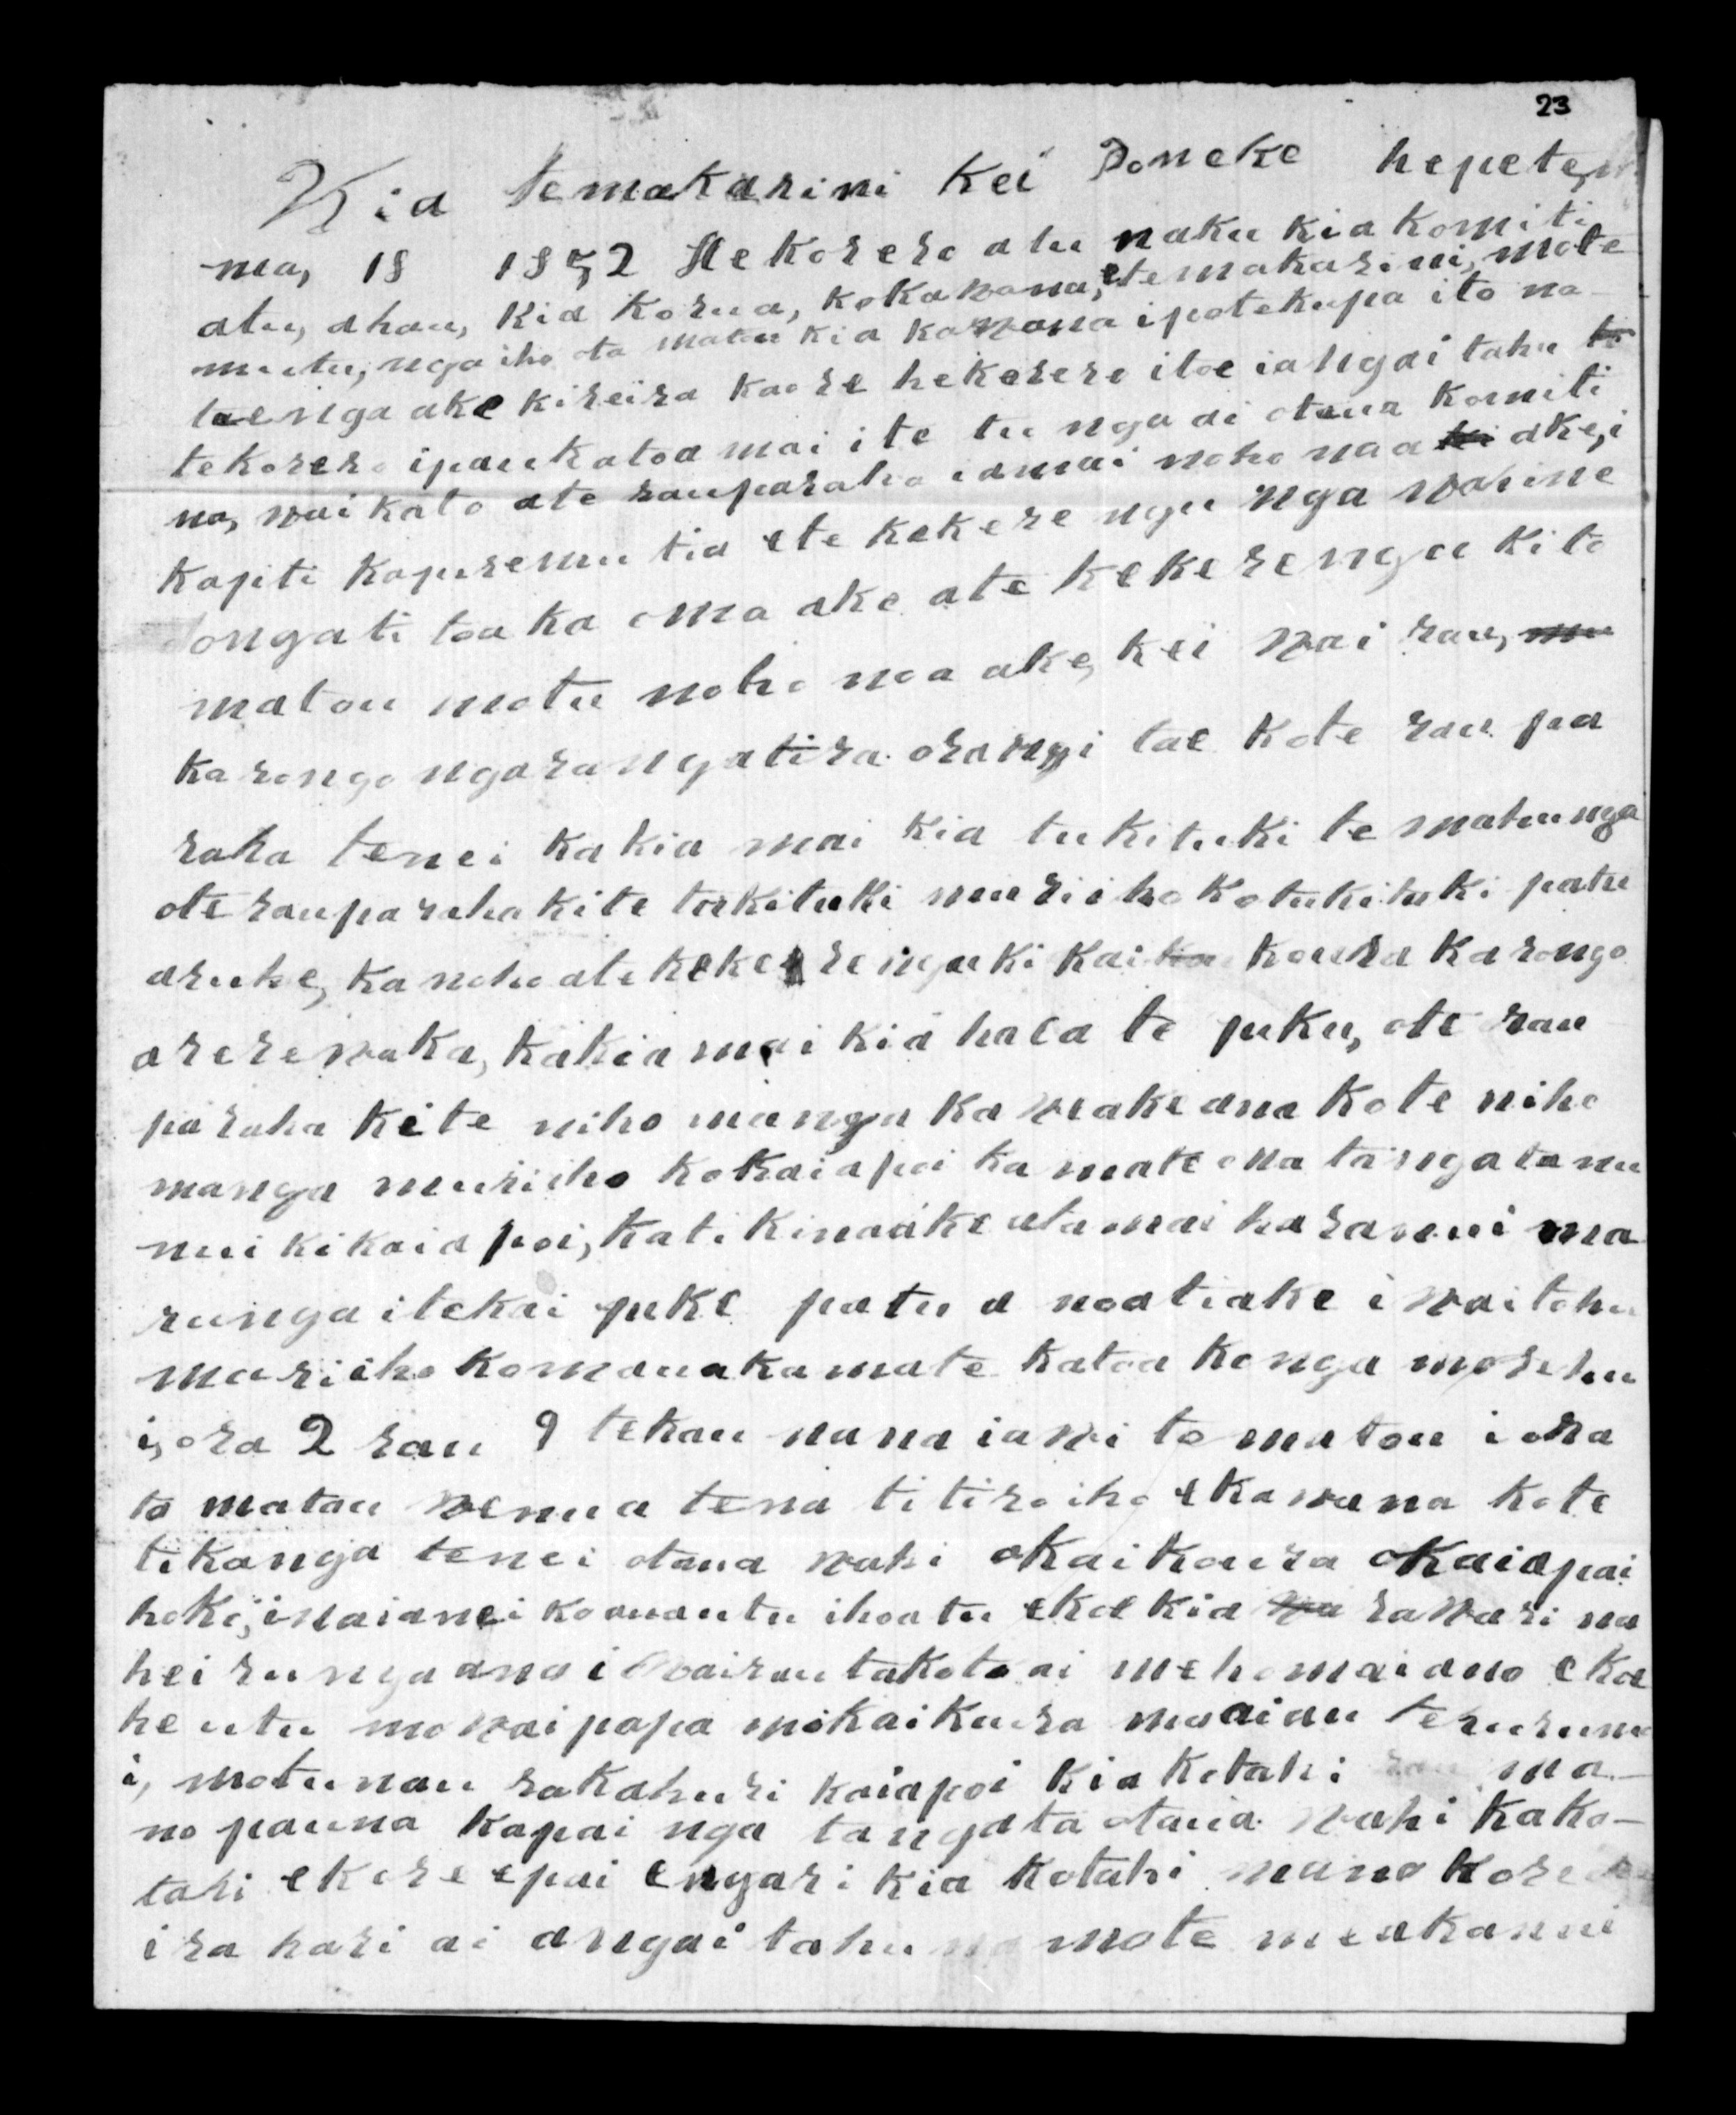 23
Kia temakarini kei Poneke hepetem
ma, 18 1852 Hekorero atu naku kia komiti
atu, ahau, kia korua, kokawana, etemakarini, mote
mutu, nga iho ota matau kia kawana ipotekupa ito no
taenga ake kireira kaore hekorero itoe iangai tahu te
tekorero ipaukatoa mai i te tu nga ai otaua komiti
na, waikato ate rauparaha iamai noho noa ki ake, i
kapiti kapuremu tia ete kekere ngu nga wahine
ongati toa ka oma ake ate kekerengu kito
matou motu noho noa ake, kei wai rau, mu
karongo ngarangatira. orangi tae kote rau pa
raha tenei kakia mai kia tukituki te mahunga
ote rauparaha kite tukituki muri iho kotukituki patu
aruhe, ka noho ate kekerenguki kai ka koura karongo
arerewaka, kakia mai kia haea te puku, ote rau
paraha kite niho manga ka weake ana kote niho
manga muri iho kokaiapoi ka mate ona tangata nu
nui kikaiapoi, kati kinaake ata mai haramui ma
runga itekai puke patu a noatiake i waitohu
muri iho komaua kamate katoa konga morehu
i, ora 2 rau 9 tekau nana iawi to matou i ora
to matau wenua tena titiro iho ekawana kote
tikanga tenei otaua wahi okaikoura okaiapai
hoki, inaianei koauautu ihoatu ekoe kia wa rawari na
hei runga ana i wairau takoto ai mehomaiano ekoe
he utu mowaipapa mokaikoura moaiau tehurunu
i, motunau rakahuri kaiapoi kia kotahi rau ma-
no pauna kapai nga tangata otaua wahi kako-
tahi ekore epai engari kia kotahi mano kore
ira hari ai angaitahu no mote meakanui